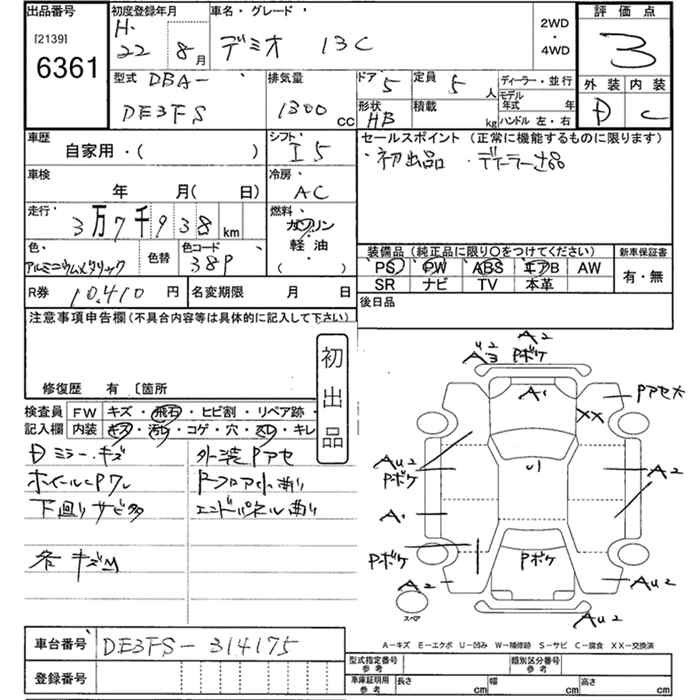 出品番号
[2139]
6361
初度登録年月
H.
22 8月
車名・グレード
デミオ 13C
2WD
・
4WD
評価点
3
外装 内装
D C
型式 DBA-
DE3FS
排気量
1300 cc
ドア 5
定員 5人
ディーラー・並行
形状
HB
積載 kg
モデル年式 年
ハンドル 左・右
車歴
自家用・( )
シフト
I5
車検
年 月( 日)
冷房
AC
走行
3万7千938km
燃料
ガソリン
・
軽油
( )
色
アルミニウムメタリック
色替
色コード
38P
R券 10,410 円
名変期限 月 日
セールスポイント(正常に機能するものに限ります)
・初出品 ・ディーラー記録
装備品(純正品に限り○をつけてください)
PS PW ABS エアB AW
SR ナビ TV 本革
新車保証書
有・無
後日品
注意事項申告欄(不具合内容等は具体的に記入して下さい)
修復歴 有 〔箇所
初出品
検査員記入欄
FW キズ・飛石・ヒビ割・リペア跡・
内装 キズ・汚レ・コゲ・穴・スレ・キレ
Dミラーキズ
ホイールキャップワレ
下廻りサビ多
各キズM
外装Pアセ
Pフロア小曲り
エンドパネル曲り
A2
AU3 2
Pボケ
A1
Pアセ大
XX
U1
AU2
Pボケ
A2
A1
Pボケ
Pボケ
A2
AU2
スペア
AU2
A-キズ E-エクボ U-凹み W-補修跡 S-サビ C-腐食 XX-交換済
車台番号 DE3FS-314175
登録番号
型式指定番号
参考
類別区分番号
参考
車庫証明用
参考
長さ cm
幅 cm
高さ cm